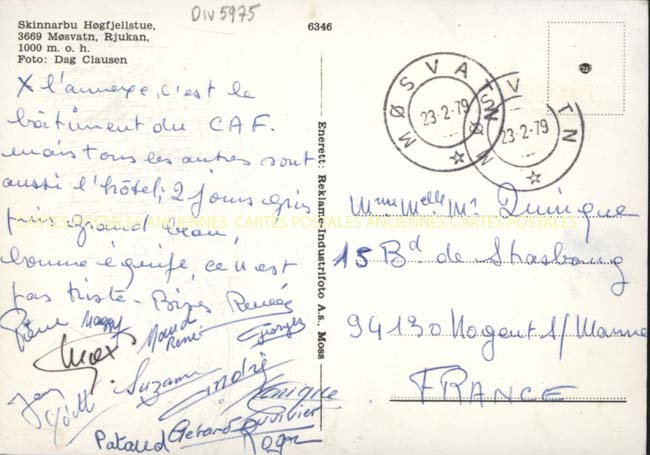 Skinnarbu Høgfjellstue,
3669 Møsvatn, Rjukan,
1000 m. o. h.
Foto: Dag Clausen
DIV 5975
6346
X l'annexe, c'est le
bâtiment du CAF.
mais tous les autres sont
aussi l'hôtel; 2 jours gris
puis grand beau,
bonne équipe, ce n'est
pas triste - Bizes Renée
Pierre Maggy
Maud
René
Georges
Max
Jean
Suzanne
André
Monique
Gérard Duvivier
Pataud
Roger
Enerett: Reklame & Industrifoto A.s., Moss
MØSVATN
23-2-79
MØSVATN
23-2-79
Mme Melle Mr Quinique
15 Bd de Strasbourg
94130 Nogent s/ Marne
FRANCE
CARTES POSTALES ANCIENNES CARTES POSTALES ANCIENNES CARTES POSTALES